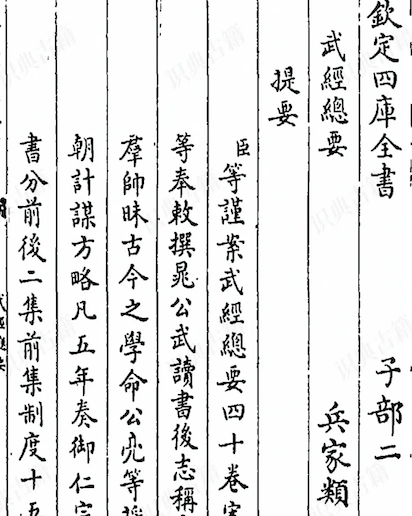 欽定四庫全書 子部二
武經總要 兵家類
提要
臣等謹案武經總要四十卷宋
等奉敕撰晁公武讀書後志稱
羣帥昧古今之學命公亮等採
朝計謀方略凡五年奏御仁宗
書分前後二集前集制度十五